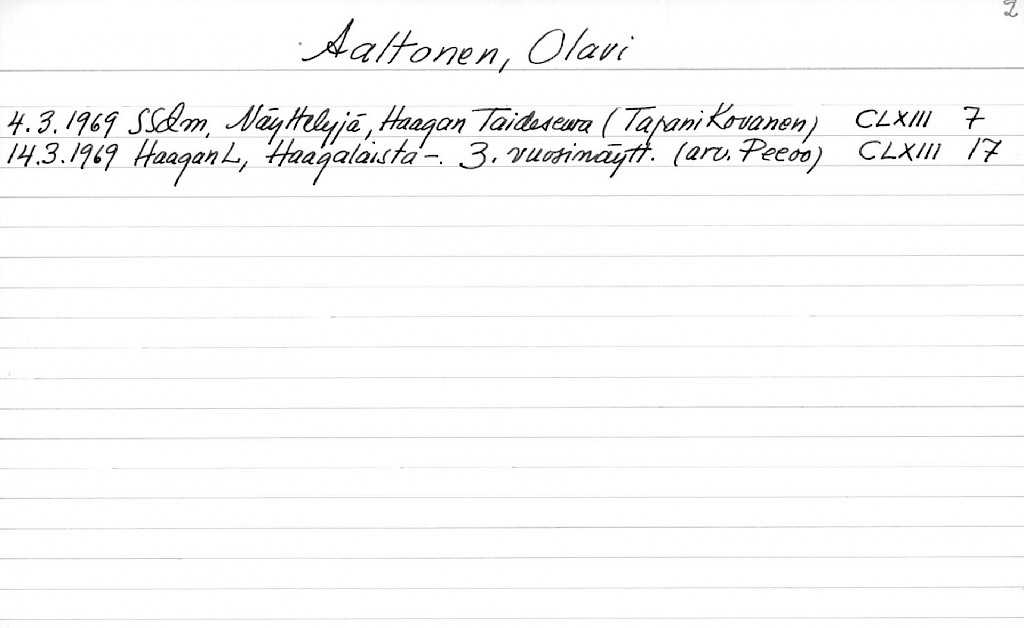 2
Aaltonen, Olavi
4.3.1969 SSdm, Näyttelyjä, Haagan Taideseura (Tapani Kovanen) CLXIII 7
14.3.1969 Haagan L, Haagalaista -. 3. vuosinäytt. (arv. Peeoo) CLXIII 17